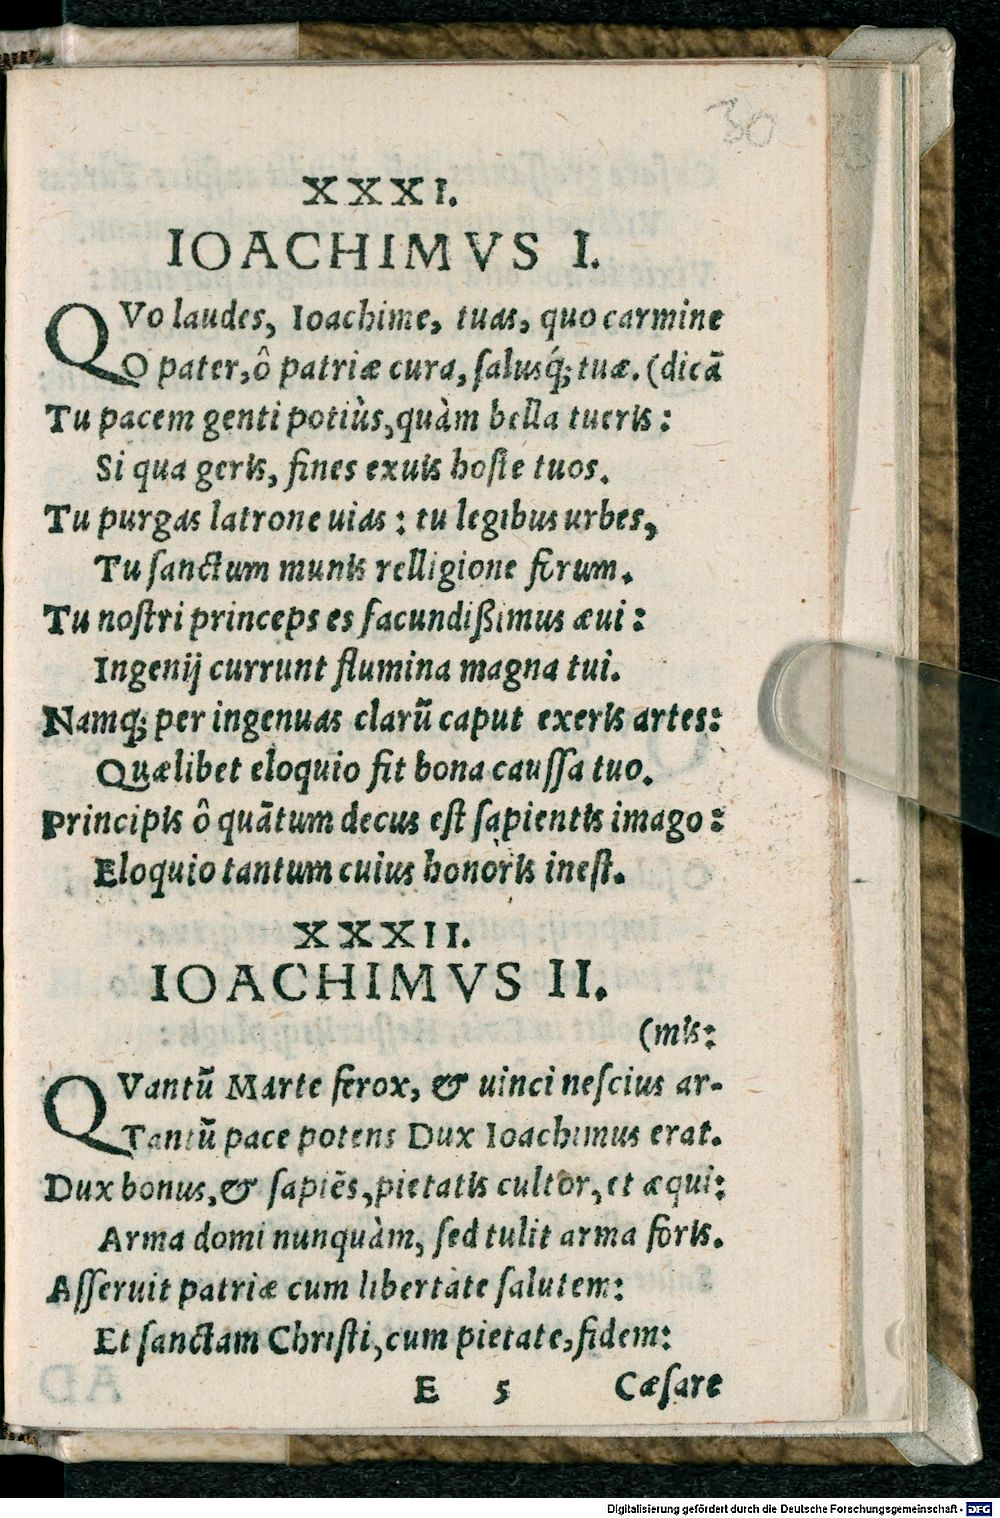 30
XXXI.
IOACHIMVS I.
QVo laudes, Ioachime, tuas, quo carmine
O pater, ô patriæ cura, ſalusq́; tuæ. (dicā
Tu pacem genti potiùs, quàm bella tueris:
Si qua geris, fines exuis hoſte tuos.
Tu purgas latrone uias: tu legibus urbes,
Tu ſanctum munis relligione forum.
Tu noſtri princeps es facundißimus æui:
Ingenij currunt flumina magna tui.
Namq; per ingenuas clarū caput exeris artes:
Quælibet eloquio fit bona cauſſa tuo.
Principis ô quātum decus eſt ſapientis imago:
Eloquio tantum cuius honoris ineſt.
XXXII.
IOACHIMVS II.
(mis:
QVantū Marte ferox, & uinci neſcius ar-
Tantū pace potens Dux Ioachimus erat.
Dux bonus, & ſapiēs, pietatis cultor, et æqui:
Arma domi nunquàm, ſed tulit arma foris.
Aſſeruit patriæ cum libertate ſalutem:
Et ſanctam Chriſti, cum pietate, fidem:
E 5 Cæſare
Digitalisierung gefördert durch die Deutsche Forschungsgemeinschaft - DFG